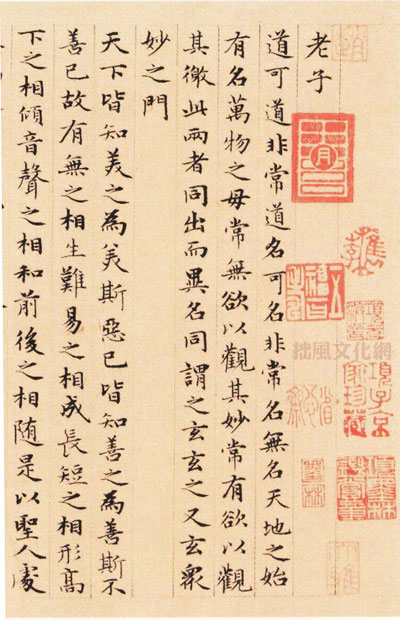 項子京家珍藏
拙風文化網
老子
道可道非常道名可名非常名無名天地之始
有名萬物之母常無欲以觀其妙常有欲以觀
其徼此兩者同出而異名同謂之玄玄之又玄衆
妙之門
天下皆知美之為美斯惡已皆知善之為善斯不
善已故有無之相生難易之相成長短之相形高
下之相傾音聲之相和前後之相随是以聖人處